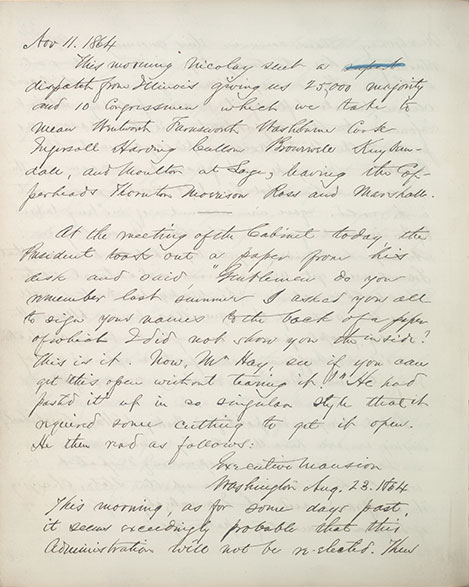 Nov 11. 1864
This morning Nicolay sent a
dispatch from Illinois giving us 25,000 majority
and 10 Congressmen which we take to
mean Wentworth Farnsworth Washburne Cook
Ingersoll Harding Cullom Bromwell Kuyken-
dall, and Moulton at Large, leaving the Cop-
perheads Thornton Morrison Ross and Marshall.
At the meeting of the Cabinet today, the
President took out a paper from his
desk and said, "Gentlemen do you
remember last summer I asked you all
to sign your names to the back of a paper
of which I did not show you the inside?
This is it. Now, Mr Hay, see if you can
get this open without tearing it." He had
pasted it up in so singular style that it
required some cutting to get it open.
He then read as follows.
Executive Mansion
Washington Aug. 23. 1864
This morning, as for some days past,
it seems exceedingly probable that this
Administration will not be re-elected. Then